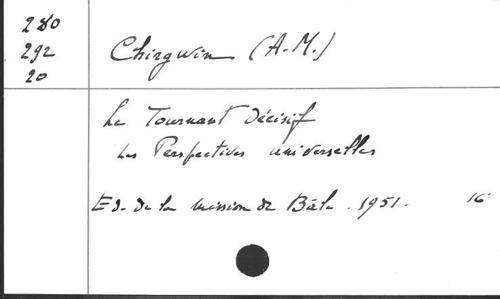 280
292
20
Chirgwin (A.-M.)
Le Tournant Décisif
Les Perspectives universelles
Ed. de la mission de Bâle. 1951. 16